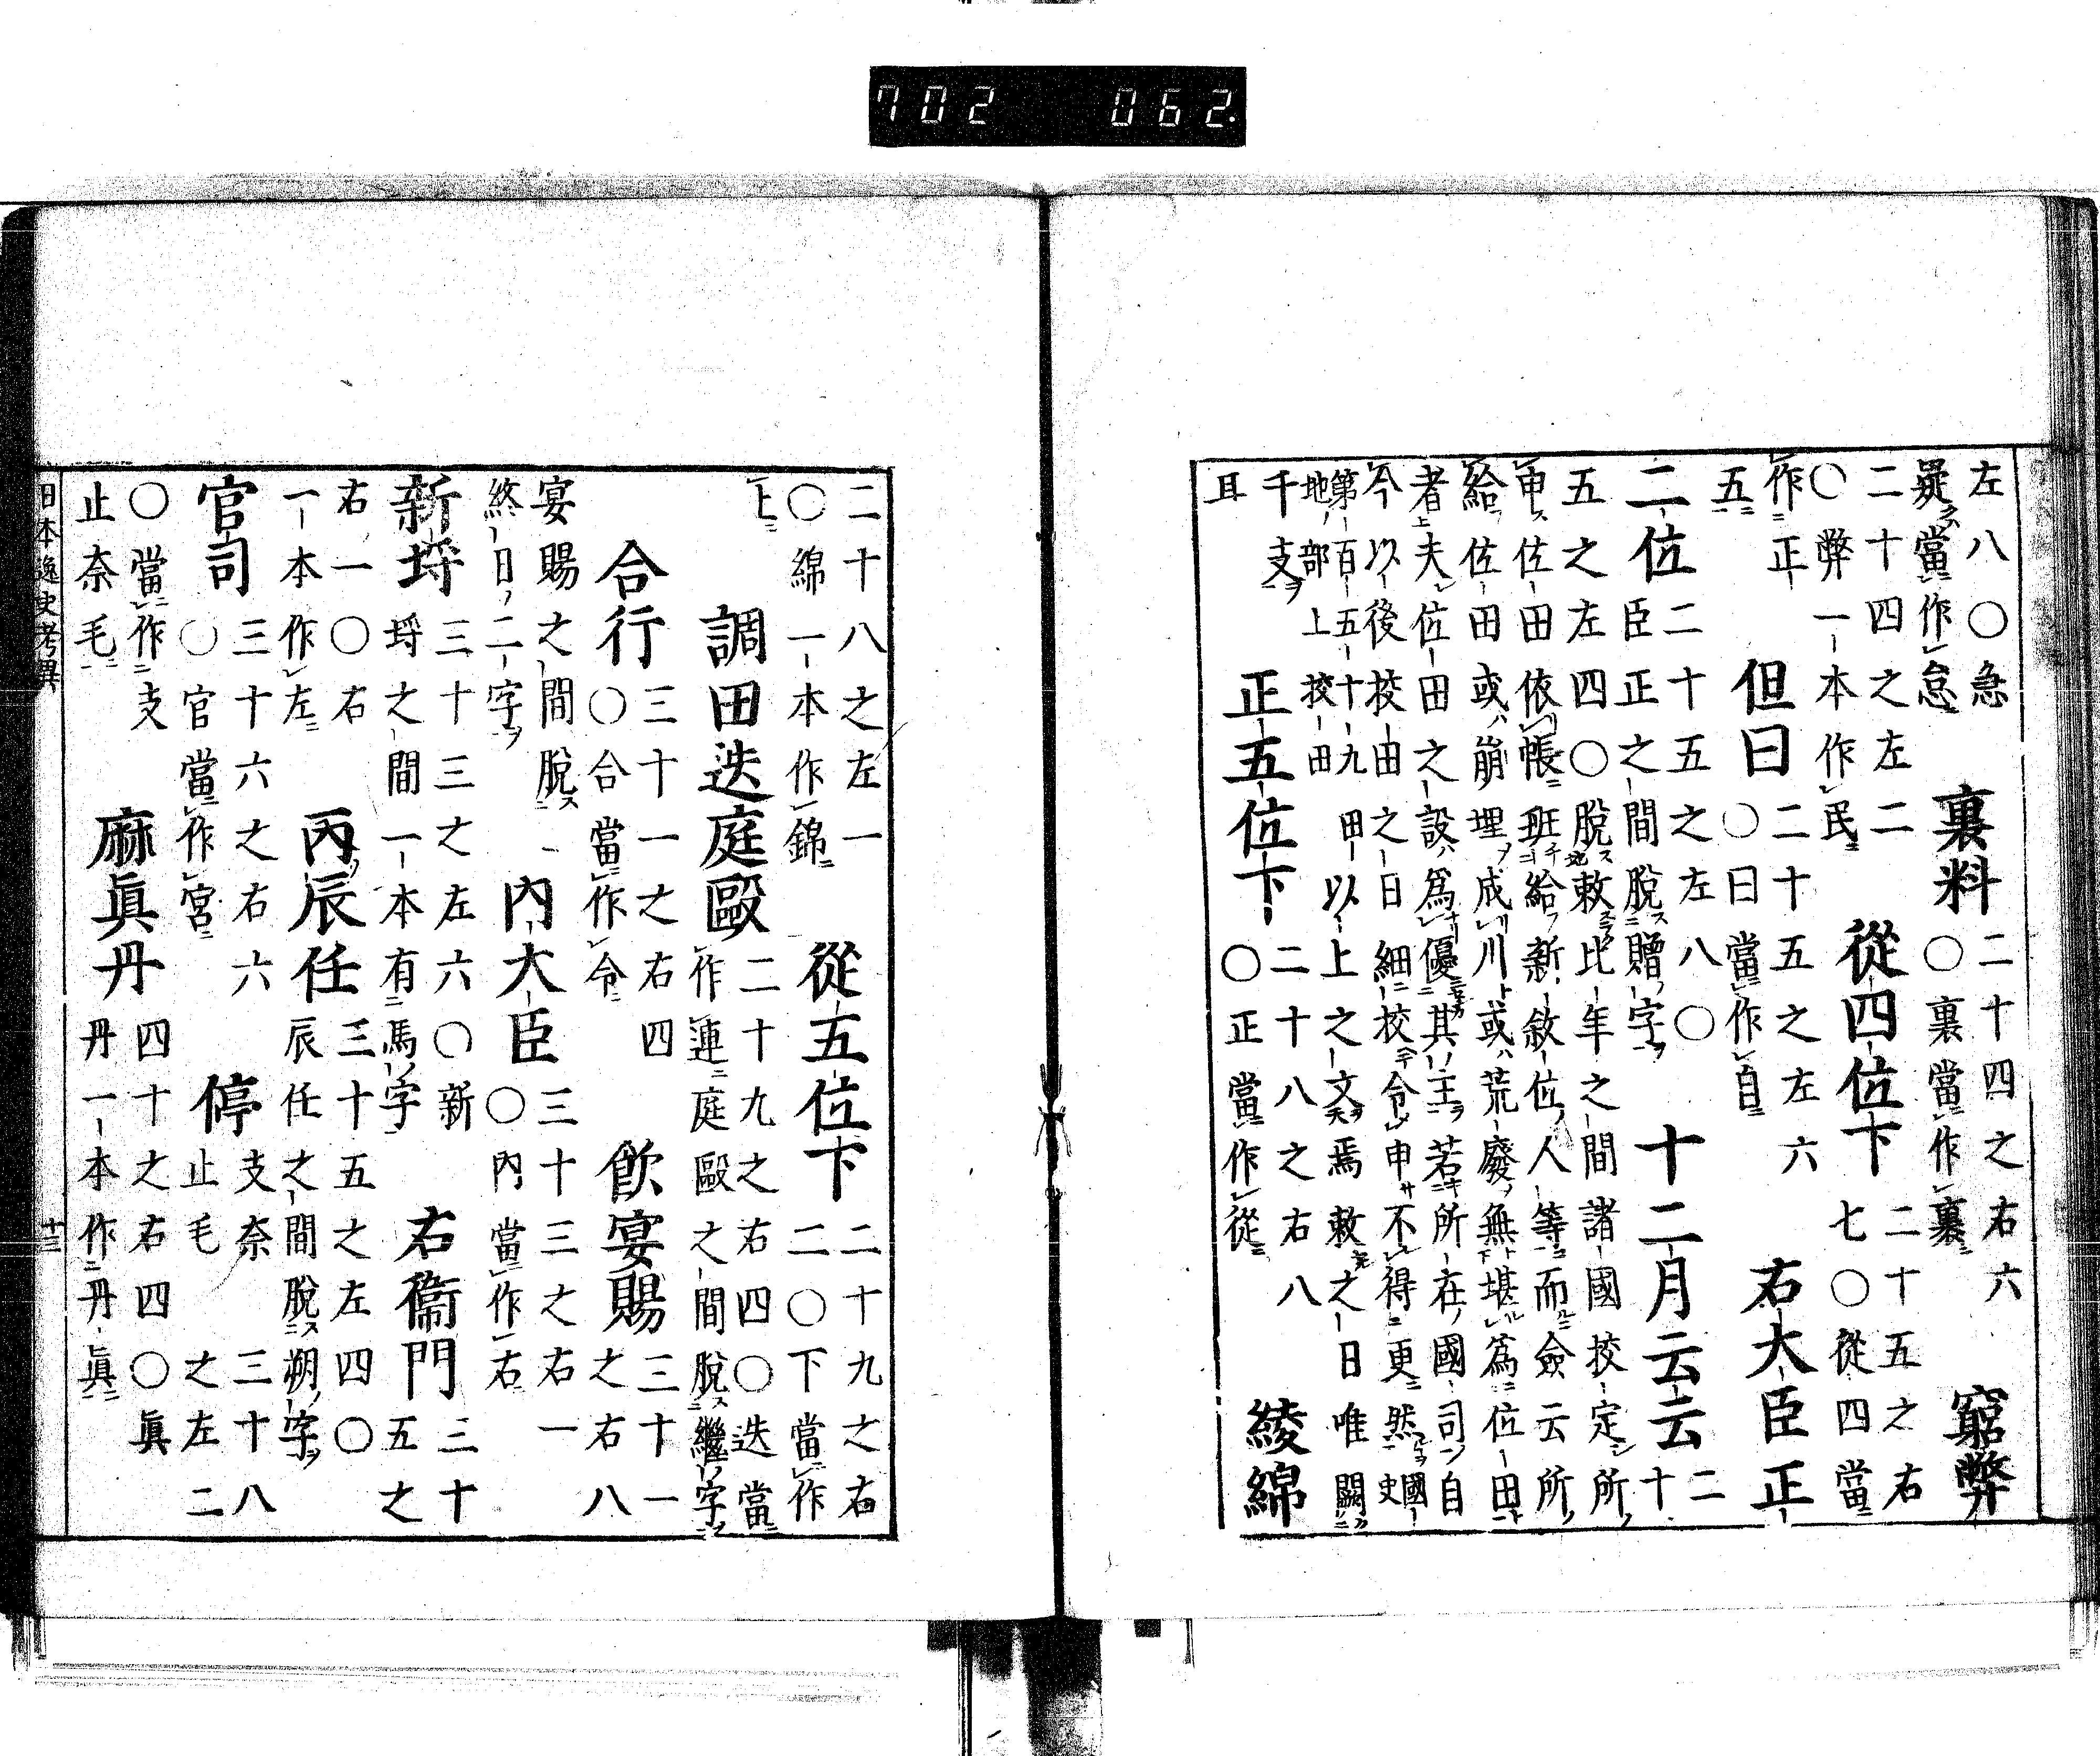 左八〇急
疑當作怠
裏料
二十四之右六
〇裏當作裹
窮弊
二十四之左二
〇弊一本作民
從四位下
二十五之右
七〇從四當
作正
五
但曰
二十五之左六
〇曰當作自
右大臣正
二位
二十五之左八〇
臣正之間脫贈字
十二月云云
二
十
五之左四〇脫敕比年之間諸國挍定所
申佐田依帳班給新敘位人等而僉云所
給佐田或崩埋成川或荒廢無堪爲位田
者夫位田之設爲優其王若所在國司自
今以後挍田之日細挍令申不得更然國史
第百五十九田
地部上挍田
以上之文焉敕之日唯闕
千支
耳
正五位下
二十八之右八
〇正當作從
綾綿
二十八之左一
〇綿一本作錦
從五位下
二十九之右
二〇下當作
上
調田迭庭歐
二十九之右四〇迭當
作連庭歐之間脫繼字
合行
三十一之右四
〇合當作令
飲宴賜
三十一
之右八
宴賜之間脫
終日二字
內大臣
三十三之右一
〇內當作右
新埒
三十三之左六〇新
埒之間一本有馬字
右衞門
三十
五之
右一〇右
一本作左
丙辰任
三十五之左四〇
辰任之間脫朔字
官司
三十六之右六
〇官當作宮
停
支奈
止毛
三十八
之左二
〇當作支
止奈毛
麻眞丹
四十之右四〇眞
丹一本作丹眞
日本逸史考異 十三
702 062